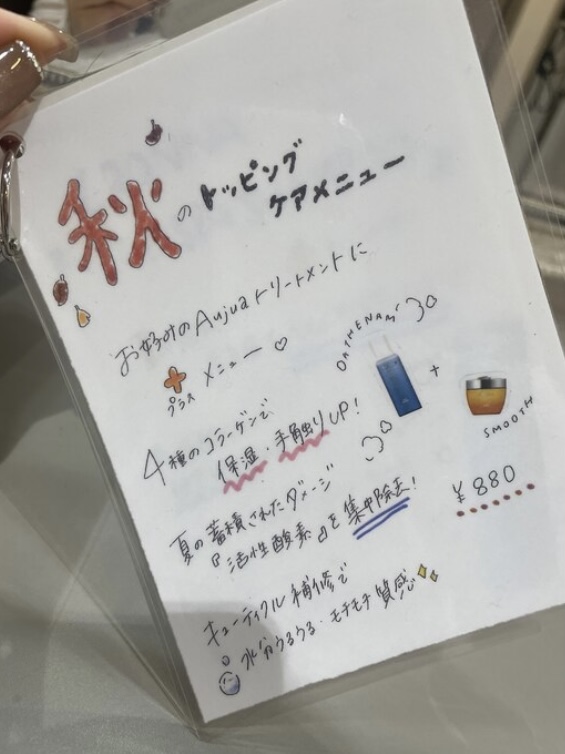 秋の トッピング
ケアメニュー
お好みのAujuaトリートメントに
プラス メニュー♡
4種のコラーゲンで
保湿・手触りUP!
+
SMOOTH
夏の蓄積されたダメージ
『活性酸素』を集中除去!
¥880
キューティクル補修で
水分うるうる・モチモチ質感